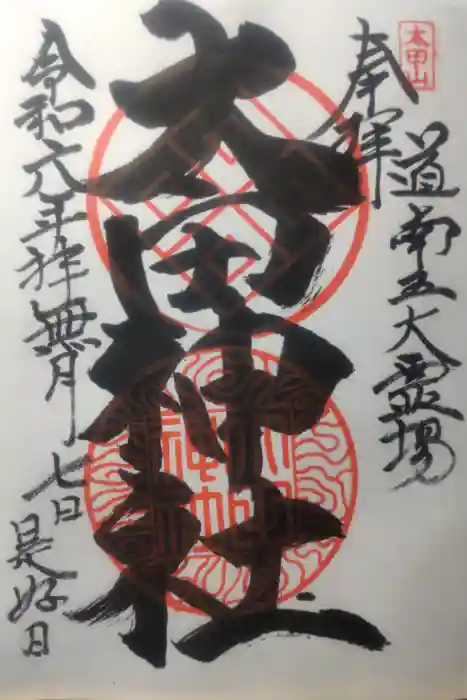 太田山
道南五大霊場
奉拝
太田神社
令和六年神無月七日
是好日